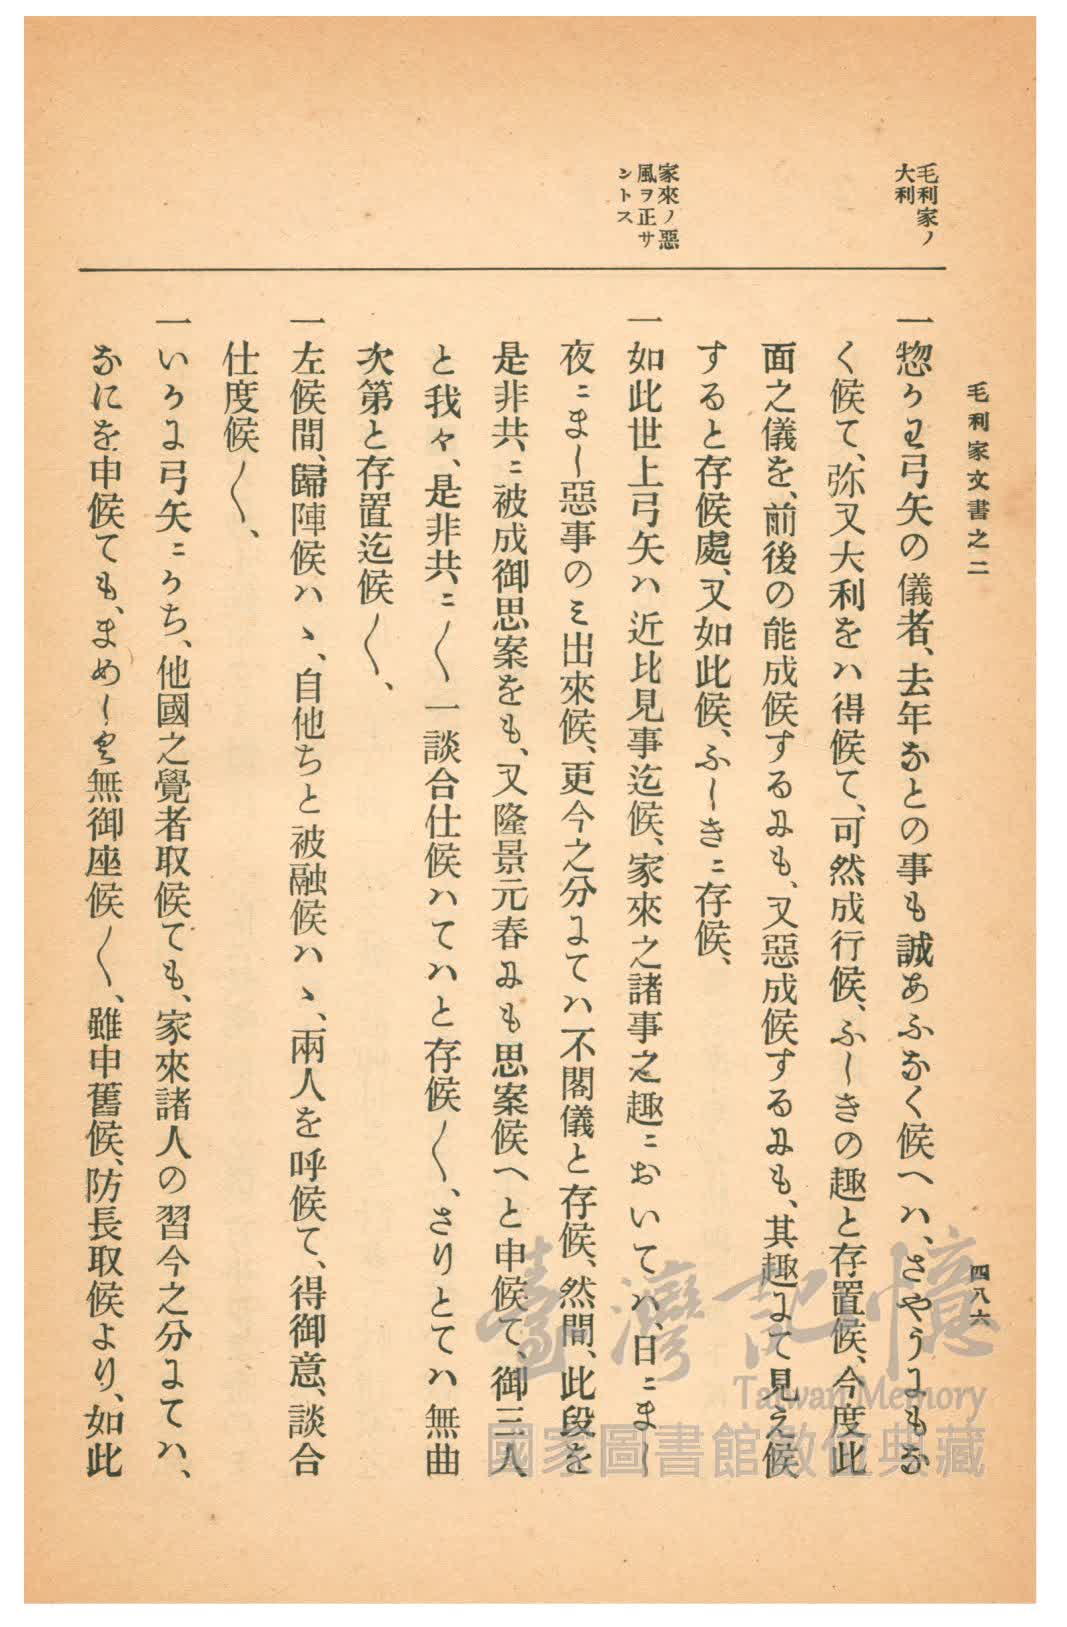 毛利家文書之二
四八六
毛利家ノ
大利
一惣かわ弓矢の儀者、去年なとの事も誠あふなく候ヘハ、さやうにもな
く候て、弥又大利をハ得候て、可然成行候、ふしきの趣と存置候、今度此
面之儀を、前後の能成候するにも、又惡成候するにも、其趣にて見え候
すると存候處、又如此候、ふしきニ存候、
家來ノ惡
風ヲ正サ
ントス
一如此世上弓矢ハ近比見事迄候、家來之諸事之趣ニおいてハ、日ニまし
夜ニまし惡事のミ出來候、更今之分にてハ不閣儀と存候、然間、此段を
是非共ニ被成御思案をも、又隆景元春にも思案候へと申候て、御三人
と我々、是非共ニ〳〵一談合仕候ハてハと存候〳〵、さりとてハ無曲
次第と存置迄候〳〵、
一左候間、歸陣候ハヽ、自他ちと被融候ハヽ、兩人を呼候て、得御意、談合
仕度候〳〵、
一いかに弓矢ニかち、他國之覺者取候ても、家來諸人の習今之分にてハ、
なにを申候ても、まめしく無御座候〳〵、雖申舊候、防長取候より、如此
臺灣記憶
Taiwan Memory
國家圖書館數位典藏